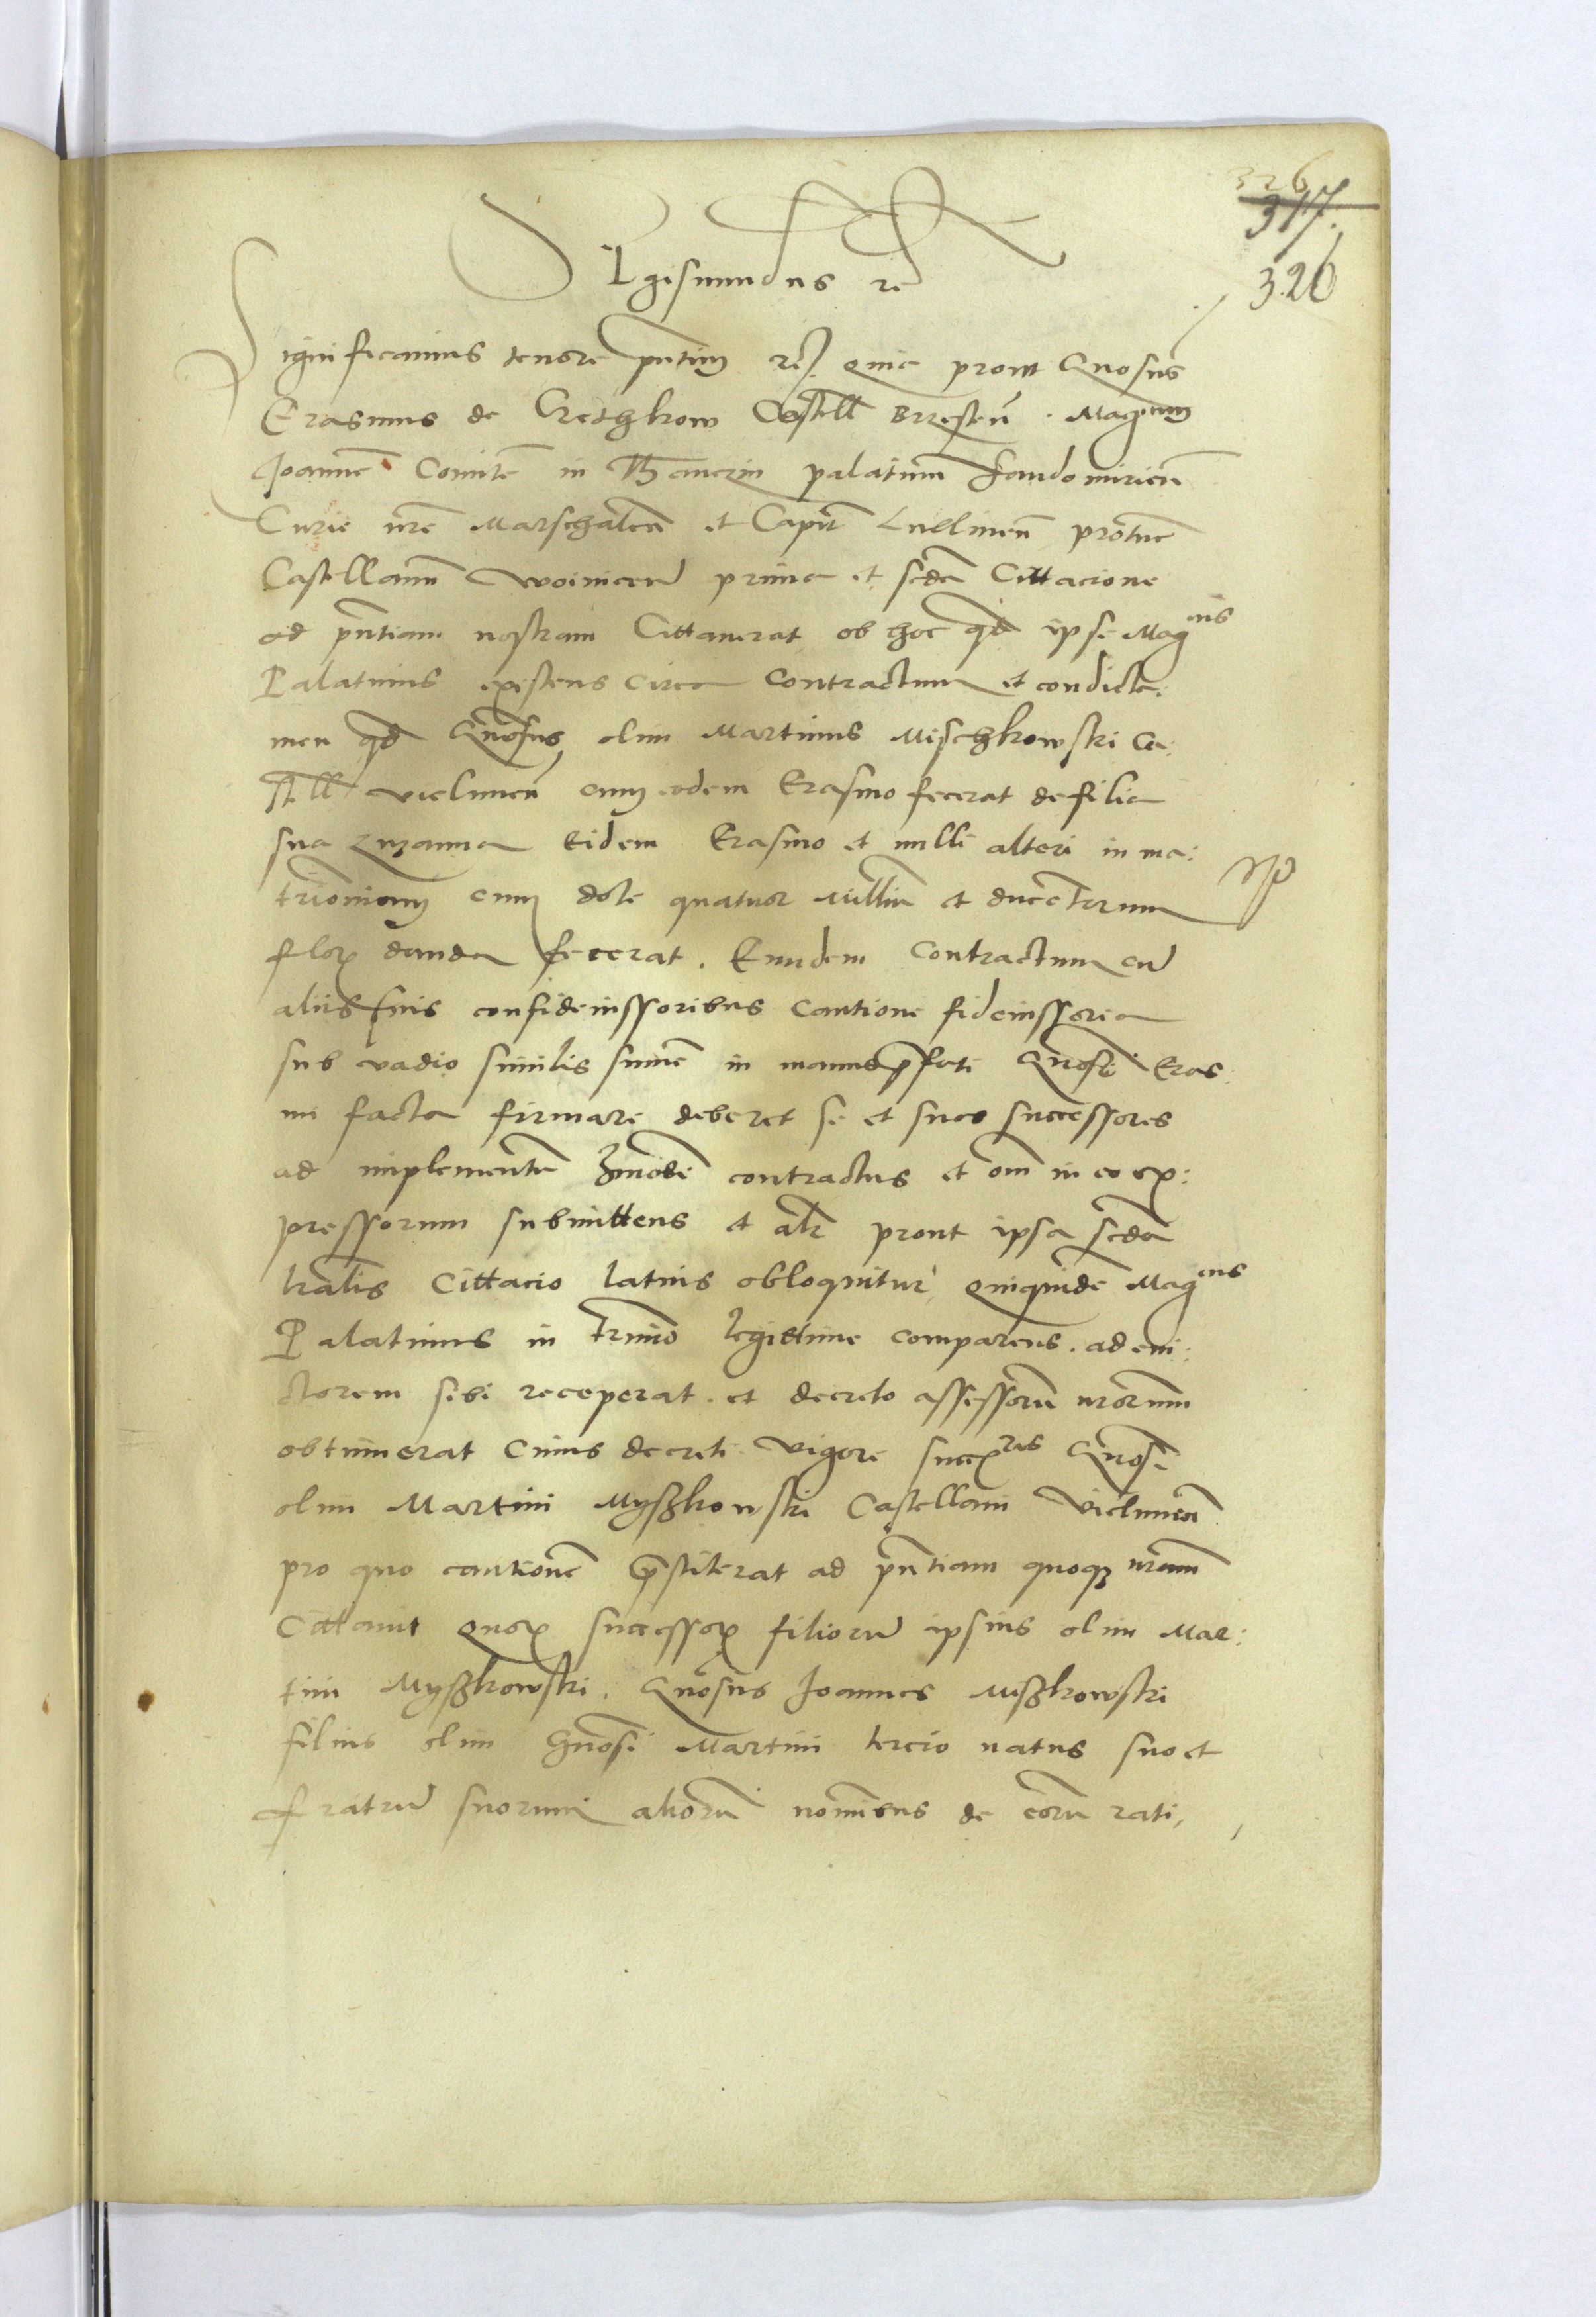 326
317.
326
Sigismundus rc
Significamus tenore pntium rc. quia prout Gnosus
Erasmus de Crethkow Castell Brzesten. Magcum
Joannē Comitē in Tharnczin palatinum Sandomirien
Curie nre Marschalcū et Capit Lublinen protunc
Castellanū Woinicen prima et scda Cittacione
ad pntiam nostram Cittauerat ob hoc qd ipse Mag cus
Palatinus existens circa contractum et condicta:
men qd Gnosus olim Martinus Mischkowski Ca:
stell vielunen cum eodem Erasmo fecerat de filia
sua Zuzanna eidem Erasmo et nulli alteri in ma:
trimonium cum dote quatuor Millium et ducentorum
flor danda fecerat. Eundem contractum cu
aliis suis confideiussoribus cautione fideiussoria
sub vadio similis summe in manus pfati Gnosi Eras:
mi facta firmare deberet se et suos successores
ad implementū hmodi contractus et om in eo ex:
pressorum submittens et alr prout ipsa scda
tralis Cittacio latius obloquitur, quiquide Mag cus
Palatinus in trmino legittime comparens. ad eui:
ctorem sibi receperat. et decreto assessorū nrorum
obtinuerat Cuius decreti vigore succ res Gnosi
olim Martini Myszkowski Castellani Vielunen
pro quo cautionē pstiterat ad pntiam quoqz nram
Cittauit quor successor filioru ipsius olim Mar:
tini Myszkowski. Gnosus Joannes Miszkowski
filius olim Gnosi Martini tercio natus suo et
fratru suorum aliorū nominibus de eorū rati,